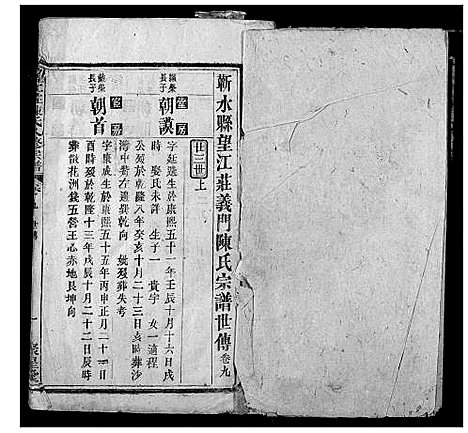 蘄水縣望江莊義門陳氏宗譜世傳 卷九
廿三世上
顯榮長子
堂房
朝謨
字延遠生於康熙五十一年壬辰十月十六日戌
時 娶氏未詳 生子一 貴宇 女一適程
公歿於乾隆八年癸亥十月二十三日亥時葬沙
灣中嘴右邊巽乾向 妣歿葬失考
長子
房
朝首
字康成生於康熙五十五年丙申正月二十二日
時歿於乾隆十三年戊辰十月二十二日辰時
葬橙花洲錢五營王心赤地艮坤向